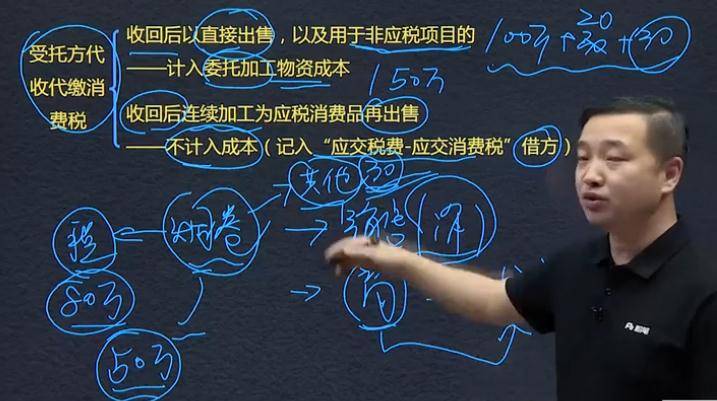 受托方代
收代缴消
费税
收回后以直接出售，以及用于非应税项目的
——计入委托加工物资成本
收回后连续加工为应税消费品再出售
——不计入成本（记入“应交税费-应交消费税”借方）
100万+20
+30
150万
其他 30
烟卷
税
80万
50万